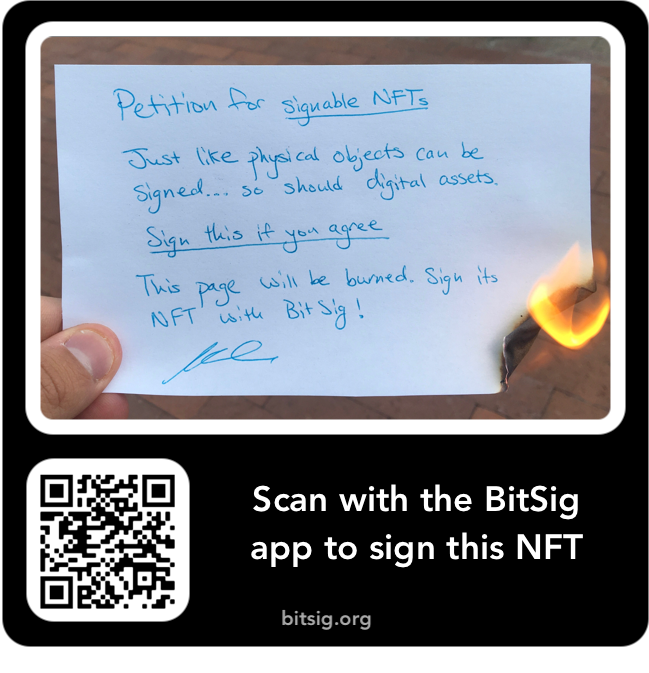 Petition for signable NFTs
Just like physical objects can be
signed... so should digital assets.
Sign this if you agree
This page will be burned. Sign its
NFT with BitSig!
Scan with the BitSig
app to sign this NFT
bitsig.org